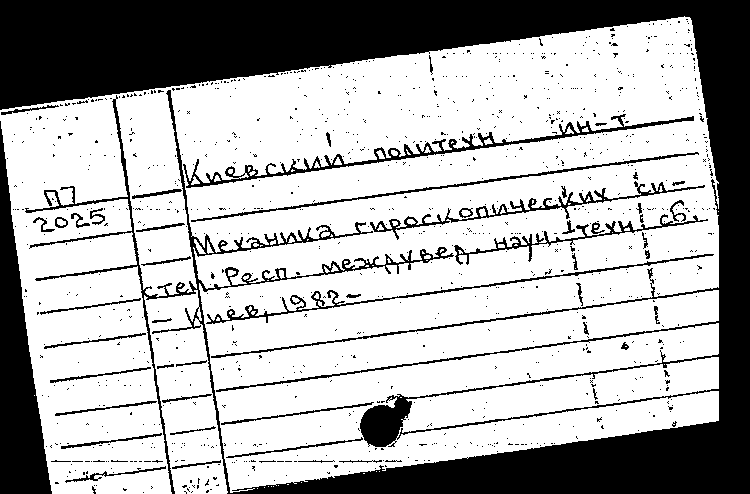 Киевский политехн. ин-т
П7
2025
Механика гироскопических си-
стем: Респ. междувед. научн.-техн. сб.
– Киев, 1982–